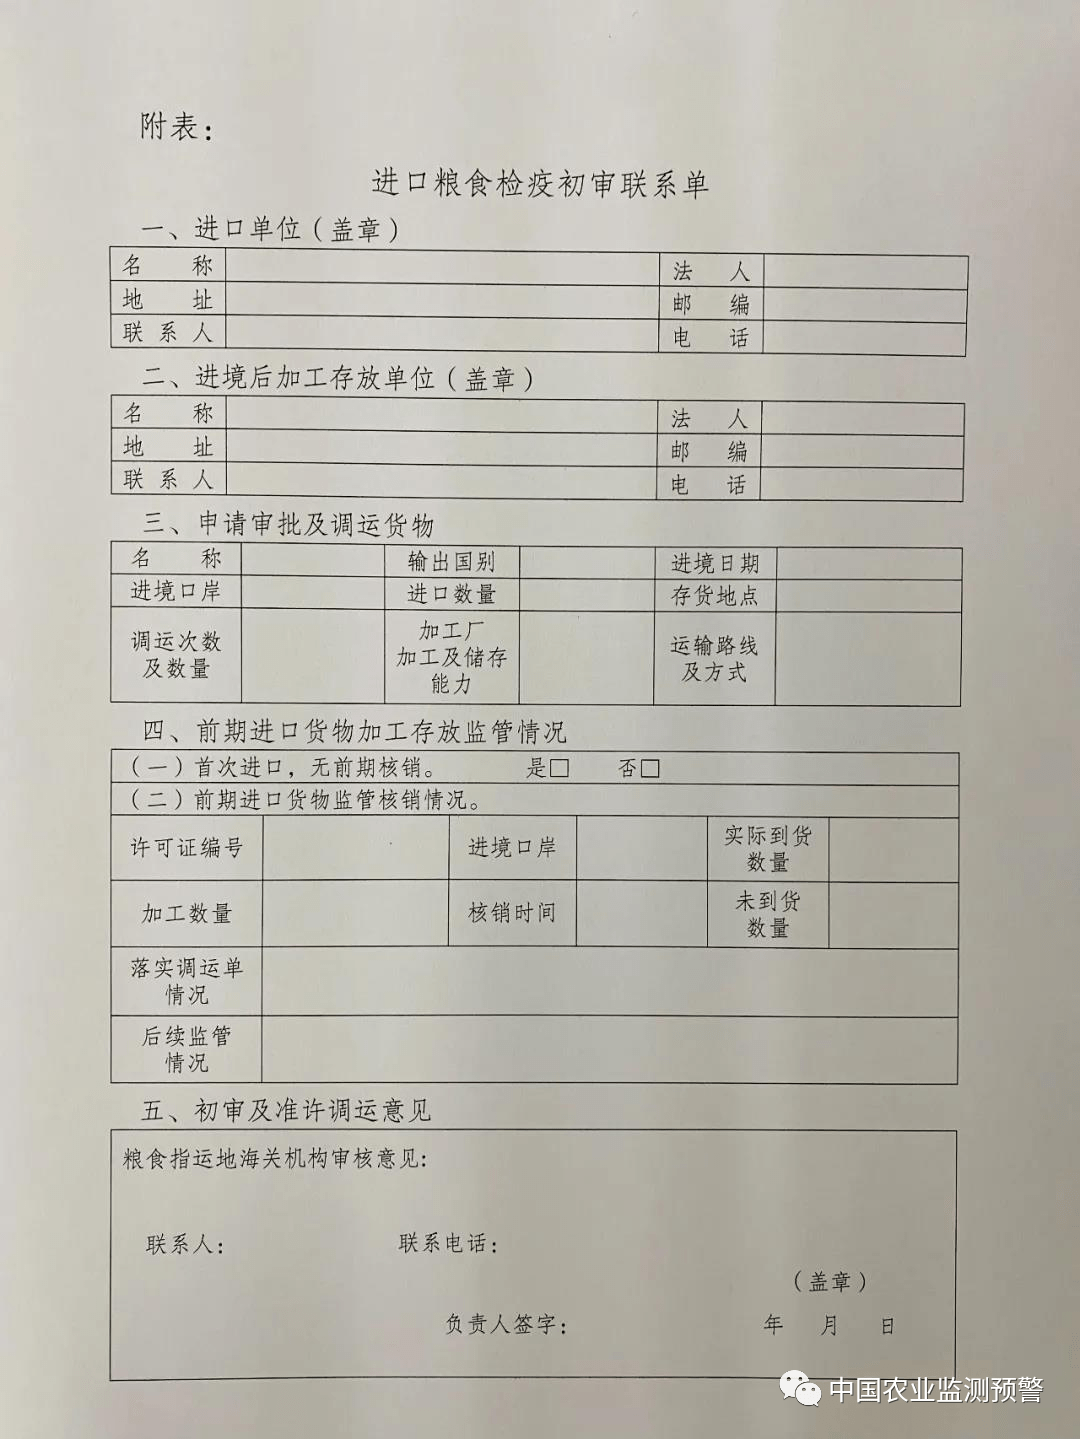 附表：
进口粮食检疫初审联系单
一、进口单位（盖章）
名 称 法 人
地 址 邮 编
联 系 人 电 话
二、进境后加工存放单位（盖章）
名 称 法 人
地 址 邮 编
联 系 人 电 话
三、申请审批及调运货物
名 称 输出国别 进境日期
进境口岸 进口数量 存货地点
调运次数
及数量
加工厂
加工及储存
能力
运输路线
及方式
四、前期进口货物加工存放监管情况
（一）首次进口，无前期核销。 是□ 否□
（二）前期进口货物监管核销情况。
许可证编号 进境口岸 实际到货
数量
加工数量 核销时间 未到货
数量
落实调运单
情况
后续监管
情况
五、初审及准许调运意见
粮食指运地海关机构审核意见：
联系人： 联系电话：
（盖章）
负责人签字： 年 月 日
中国农业监测预警